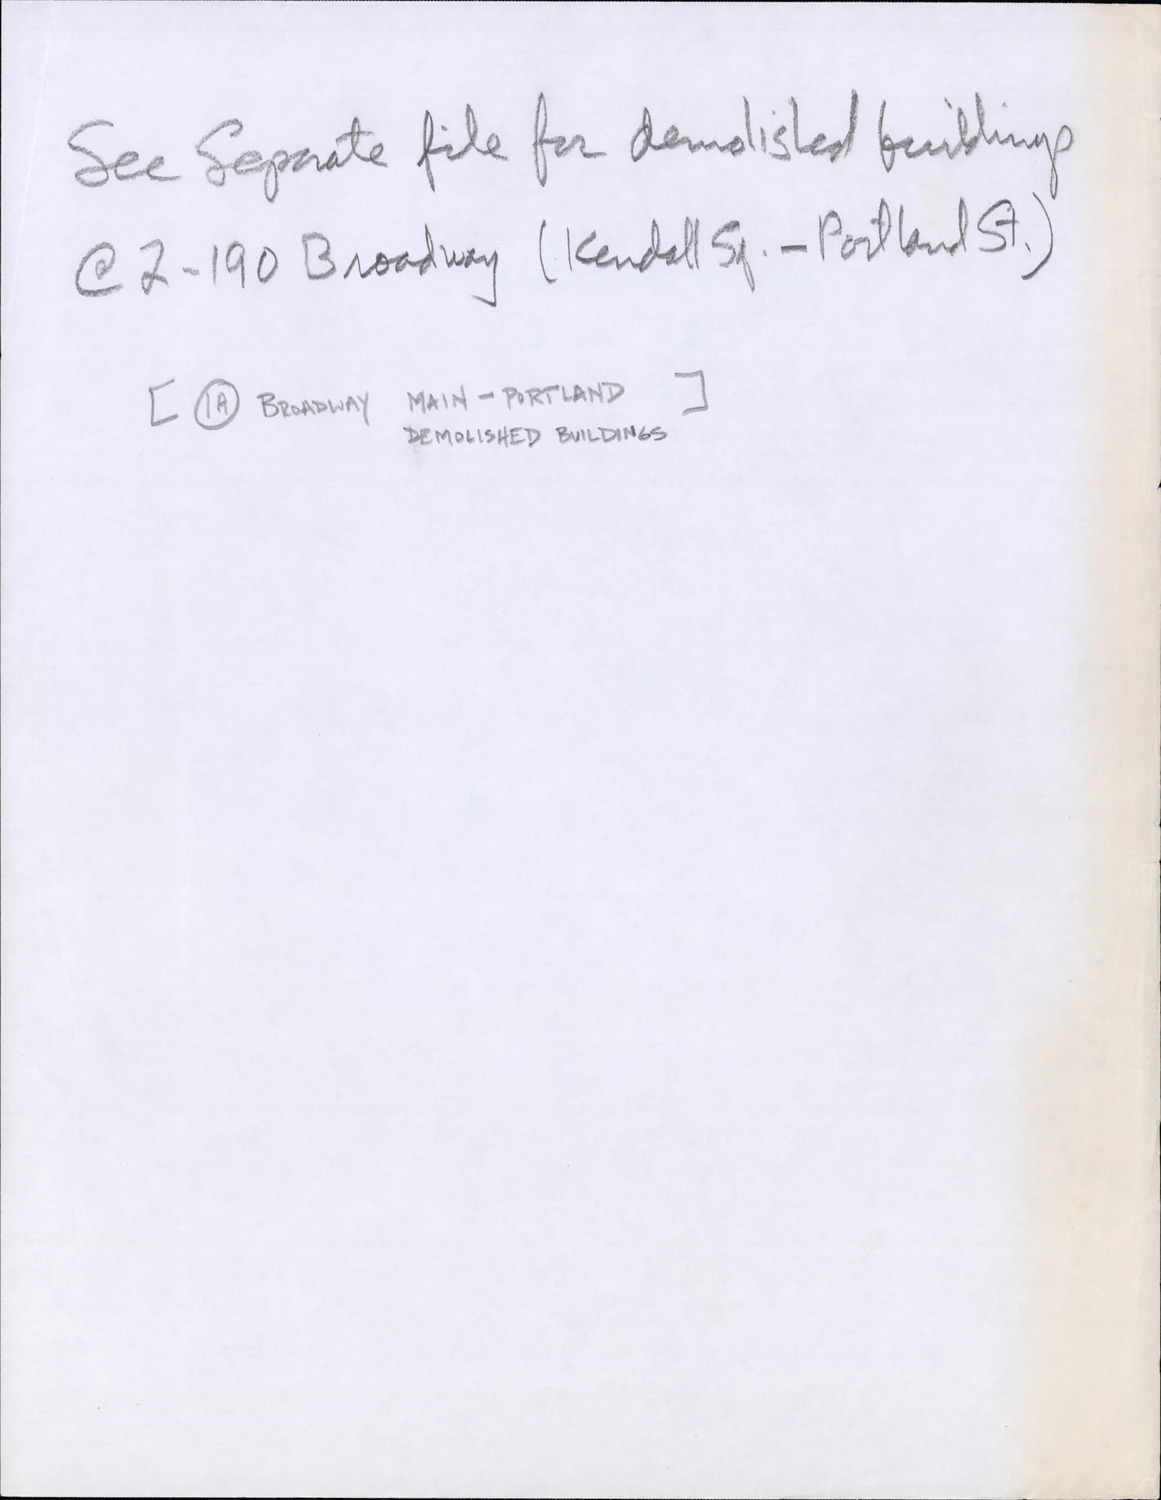 See Separate file for demolished buildings
@ 2-190 Broadway (Kendall Sq. - Portland St.)
[ 1A BROADWAY MAIN - PORTLAND ]
DEMOLISHED BUILDINGS